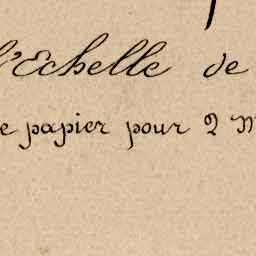 l'Echelle de
e papier pour 2 m